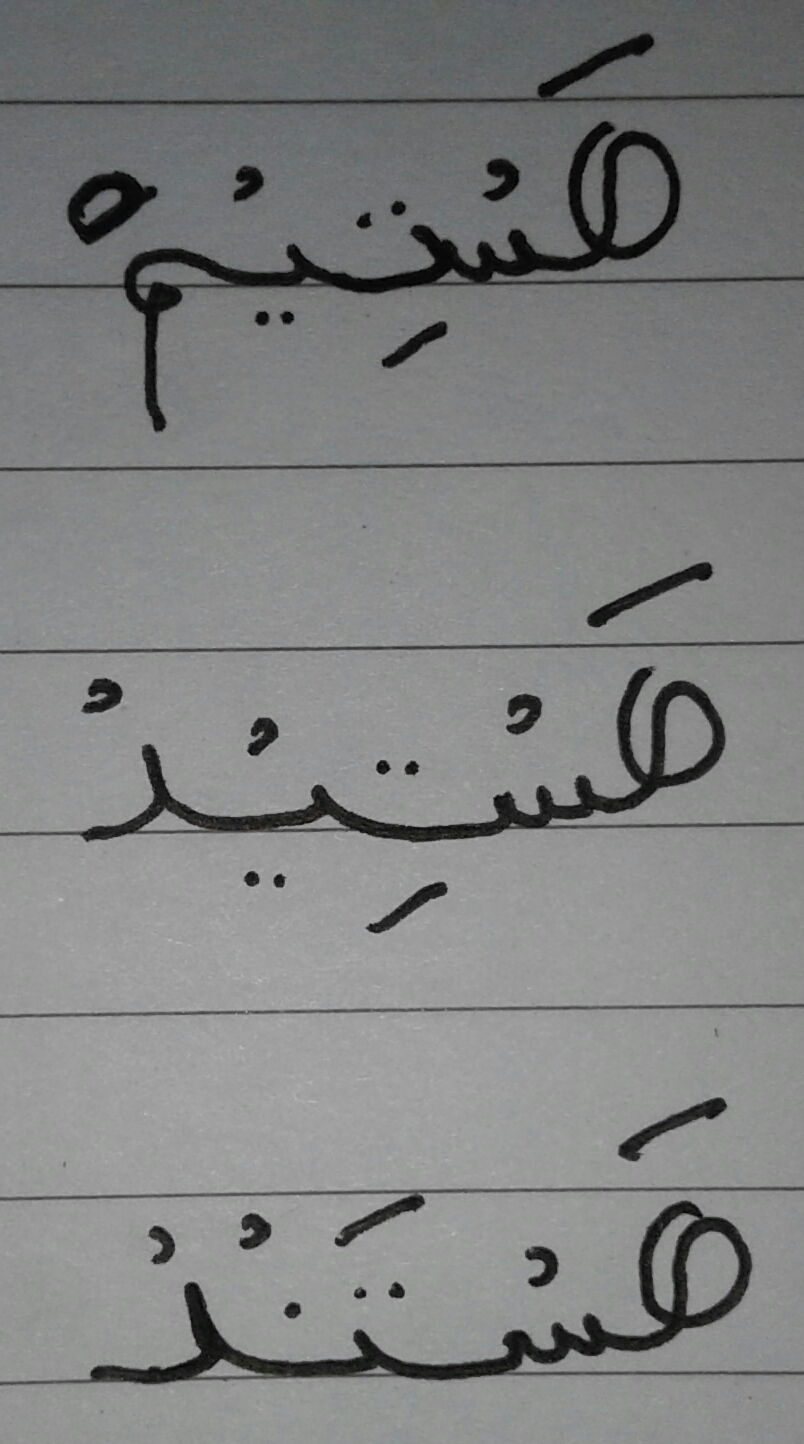 هَسْتِیْمْ
هَسْتِیْدْ
هَسْتَنْدْ